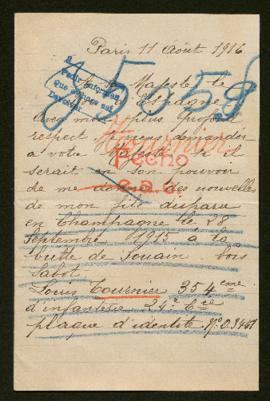 Paris 11 Août 1916
A Sa Majesté le
d'Espagne
Avec mon plus profond
respect je viens demander
a votre Majesté si il
serait en son pouvoir
de me donner des nouvelles
de mon fils disparu
en Champagne le 28
Septembre 1915 a la
butte de Souain bois
Sabot
Louis Tournier 354eme
d'infanterie 24e Cie
plaque d'identité No 0.3461
85058
Pedir informes
Tournier
Fecho